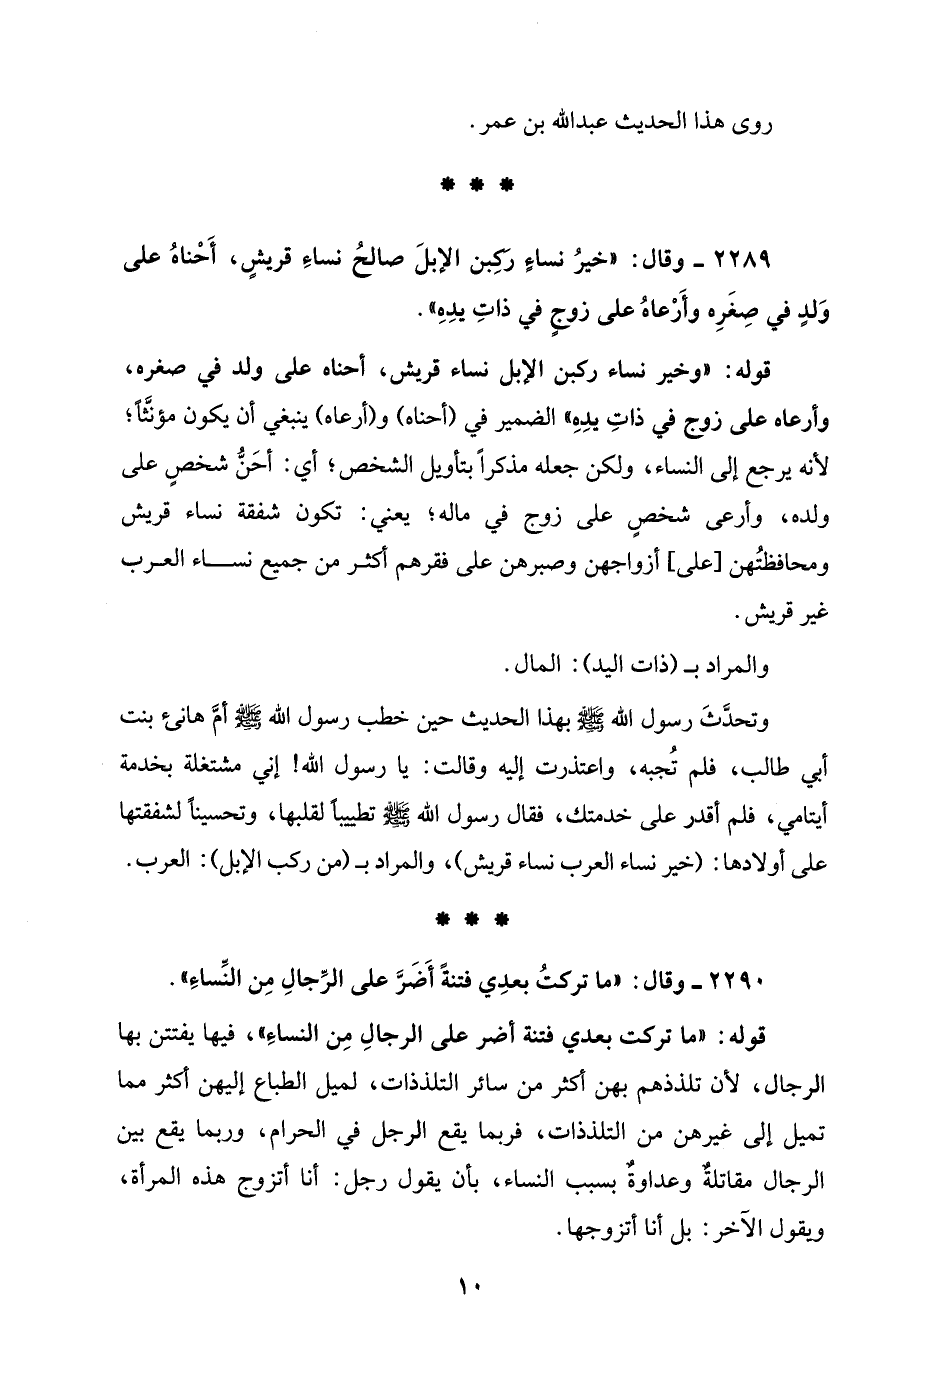 روى هذا الحديث عبدالله بن عمر.
* * *
٢٢٨٩ ـ وقال: «خيرُ نساءٍ رَكِبن الإبلَ صالحُ نساءِ قريشٍ، أَحْناهُ على
وَلدٍ في صِغَرِه وأَرْعاهُ على زوجٍ في ذاتِ يدِهِ».
قوله: «وخير نساء ركبن الإبل نساء قريش، أحناه على ولد في صغره،
وأرعاه على زوج في ذاتِ يدِهِ» الضمير في (أحناه) و(أرعاه) ينبغي أن يكون مؤنَّثاً؛
لأنه يرجع إلى النساء، ولكن جعله مذكراً بتأويل الشخص؛ أي: أحَنُّ شخصٍ على
ولده، وأرعى شخصٍ على زوج في ماله؛ يعني: تكون شفقة نساء قريش
ومحافظتُهن [على] أزواجهن وصبرهن على فقرهم أكثر من جميع نساء العرب
غير قريش.
والمراد بـ (ذات اليد): المال.
وتحدَّثَ رسول الله ﷺ بهذا الحديث حين خطب رسول الله ﷺ أمَّ هانئ بنت
أبي طالب، فلم تُجبه، واعتذرت إليه وقالت: يا رسول الله! إني مشتغلة بخدمة
أيتامي، فلم أقدر على خدمتك، فقال رسول الله ﷺ تطييباً لقلبها، وتحسيناً لشفقتها
على أولادها: (خير نساء العرب نساء قريش)، والمراد بـ (من ركب الإبل): العرب.
* * *
٢٢٩٠ ـ وقال: «ما تركتُ بعدِي فتنةً أَضَرَّ على الرِّجالِ مِن النِّساءِ».
قوله: «ما تركت بعدي فتنة أضر على الرجالِ مِن النساءِ»، فيها يفتتن بها
الرجال، لأن تلذذهم بهن أكثر من سائر التلذذات، لميل الطباع إليهن أكثر مما
تميل إلى غيرهن من التلذذات، فربما يقع الرجل في الحرام، وربما يقع بين
الرجال مقاتلةٌ وعداوةٌ بسبب النساء، بأن يقول رجل: أنا أتزوج هذه المرأة،
ويقول الآخر: بل أنا أتزوجها.
١٠